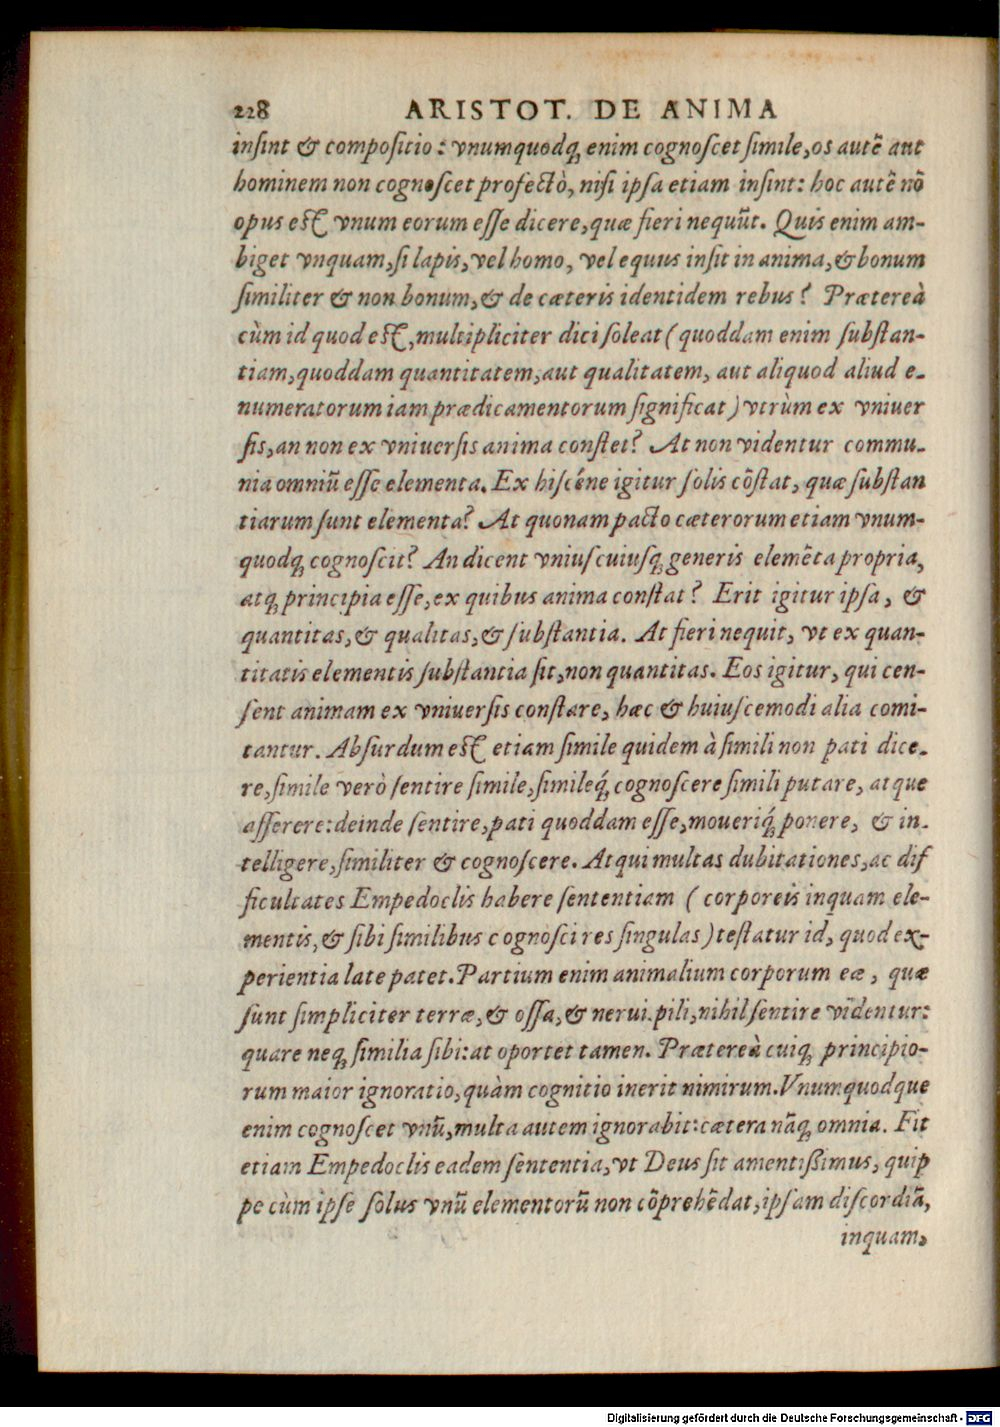 228 ARISTOT. DE ANIMA
inſint & compoſitio: vnumquodq́; enim cognoſcet ſimile, os autẽ aut
hominem non cognoſcet profectò, niſi ipſa etiam inſint: hoc autẽ nõ
opus eſt vnum eorum eſſe dicere, quæ fieri nequũt. Quis enim am-
biget vnquam, ſi lapis, vel homo, vel equus inſit in anima, & bonum
ſimiliter & non bonum, & de cæteris identidem rebus? Prætereà
cùm id quod eſt, multipliciter dici ſoleat (quoddam enim ſubſtan-
tiam, quoddam quantitatem, aut qualitatem, aut aliquod aliud e-
numeratorum iam prædicamentorum ſignificat) vtrùm ex vniuer
ſis, an non ex vniuerſis anima conſtet? At non videntur commu-
nia omniũ eſſe elementa. Ex hiſcéne igitur ſolis cõſtat, quæ ſubſtan
tiarum ſunt elementa? At quonam pacto cæterorum etiam vnum-
quodq; cognoſcit? An dicent vniuſcuiuſq; generis elemẽta propria,
atq; principia eſſe, ex quibus anima conſtat? Erit igitur ipſa, &
quantitas, & qualitas, & ſubſtantia. At fieri nequit, vt ex quan-
titatis elementis ſubſtantia ſit, non quantitas. Eos igitur, qui cen-
ſent animam ex vniuerſis conſtare, hæc & huiuſcemodi alia comi-
tantur. Abſurdum eſt etiam ſimile quidem à ſimili non pati dice-
re, ſimile verò ſentire ſimile, ſimileq́; cognoſcere ſimili putare, atque
aſſerere: deinde ſentire, pati quoddam eſſe, moueriq́; ponere, & in-
telligere, ſimiliter & cognoſcere. Atqui multas dubitationes, ac dif
ficultates Empedoclis habere ſententiam ( corporeis inquam ele-
mentis, & ſibi ſimilibus cognoſci res ſingulas) teſtatur id, quod ex-
perientia late patet. Partium enim animalium corporum eæ, quæ
ſunt ſimpliciter terræ, & oſſa, & nerui. pili, nihil ſentire videntur:
quare neq; ſimilia ſibi: at oportet tamen. Prætereà cuiq; principio-
rum maior ignoratio, quàm cognitio inerit nimirum. Vnumquodque
enim cognoſcet vnũ, multa autem ignorabit: cætera nãq; omnia. Fit
etiam Empedoclis eadem ſententia, vt Deus ſit amentißimus, quip
pe cùm ipſe ſolus vnũ elementorũ non cõprehẽdat, ipſam diſcordiã,
inquam,
Digitalisierung gefördert durch die Deutsche Forschungsgemeinschaft - DFG